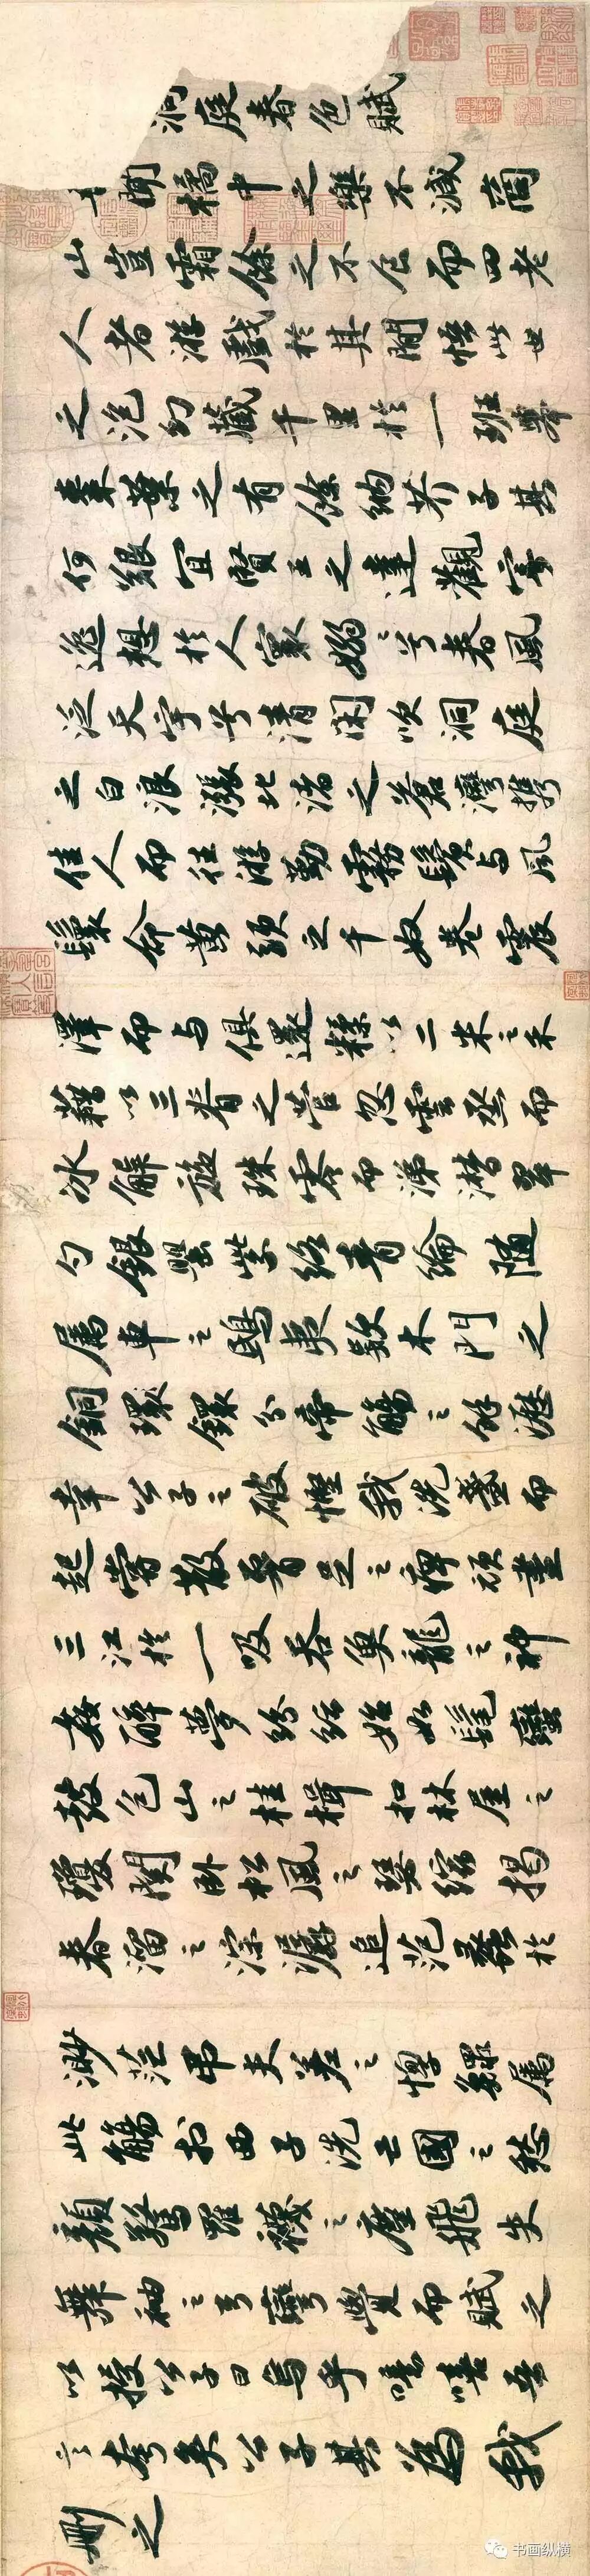 洞庭春色賦
吾聞橘中之樂不減商
山豈霜餘之不食而四老
人者游戲於其間悟此世
之泡幻藏千里於一班舉
棗葉之有餘納芥子其
何艱宜賢王之達觀寄
逸想於人寰嫋〻兮春風
泛天宇兮清閑吹洞庭
之白浪漲北渚之蒼灣攜
佳人而往游勤霧鬢与風
鬟命黃頭之千奴卷震
澤而与俱還糅以二米之禾
藉以三脊之菅忽雲烝而
冰解旋珠零而涕潸翠
勺銀罌紫絡青綸隨
屬車之鴟夷款木門之
銅環鐶分帝觴之餘瀝
幸公子之破慳我洗盞而
起嘗散腰足之痺頑盡
三江於一吸吞魚龍之神
姦醉夢紛紜始如髦蠻
鼓包山之桂楫扣林屋之
瓊關臥松風之瑟縮揭
春溜之淙潺追范蠡於
渺茫弔夫差之惸鰥屬
此觴於西子洗亡國之愁
顏驚羅襪之塵飛失
舞袖之弓彎覺而賦之
以授公子曰烏乎噫嘻吾
言夸矣公子其為我
刪之
书画纵横